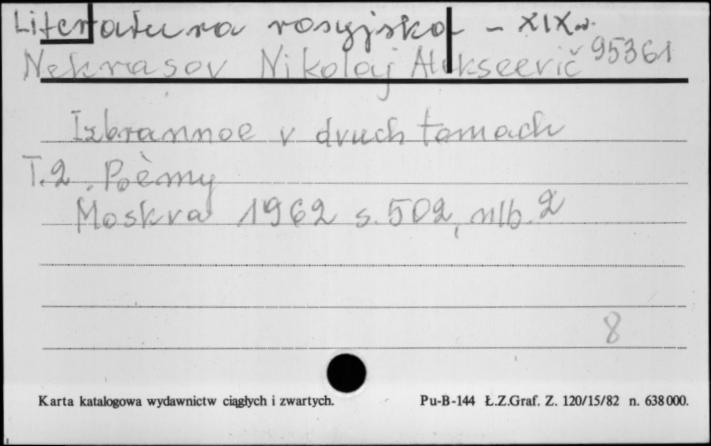 Literatura rosyjska - XIX w.
Nekrasov Nikolaj Alekseevič 95361
Izbrannoe v dvuch tomach
T.2. Poèmy
Moskva 1962 s. 502, nlb. 2
8
Karta katalogowa wydawnictw ciągłych i zwartych. Pu-B-144 Ł.Z.Graf. Z. 120/15/82 n. 638 000.